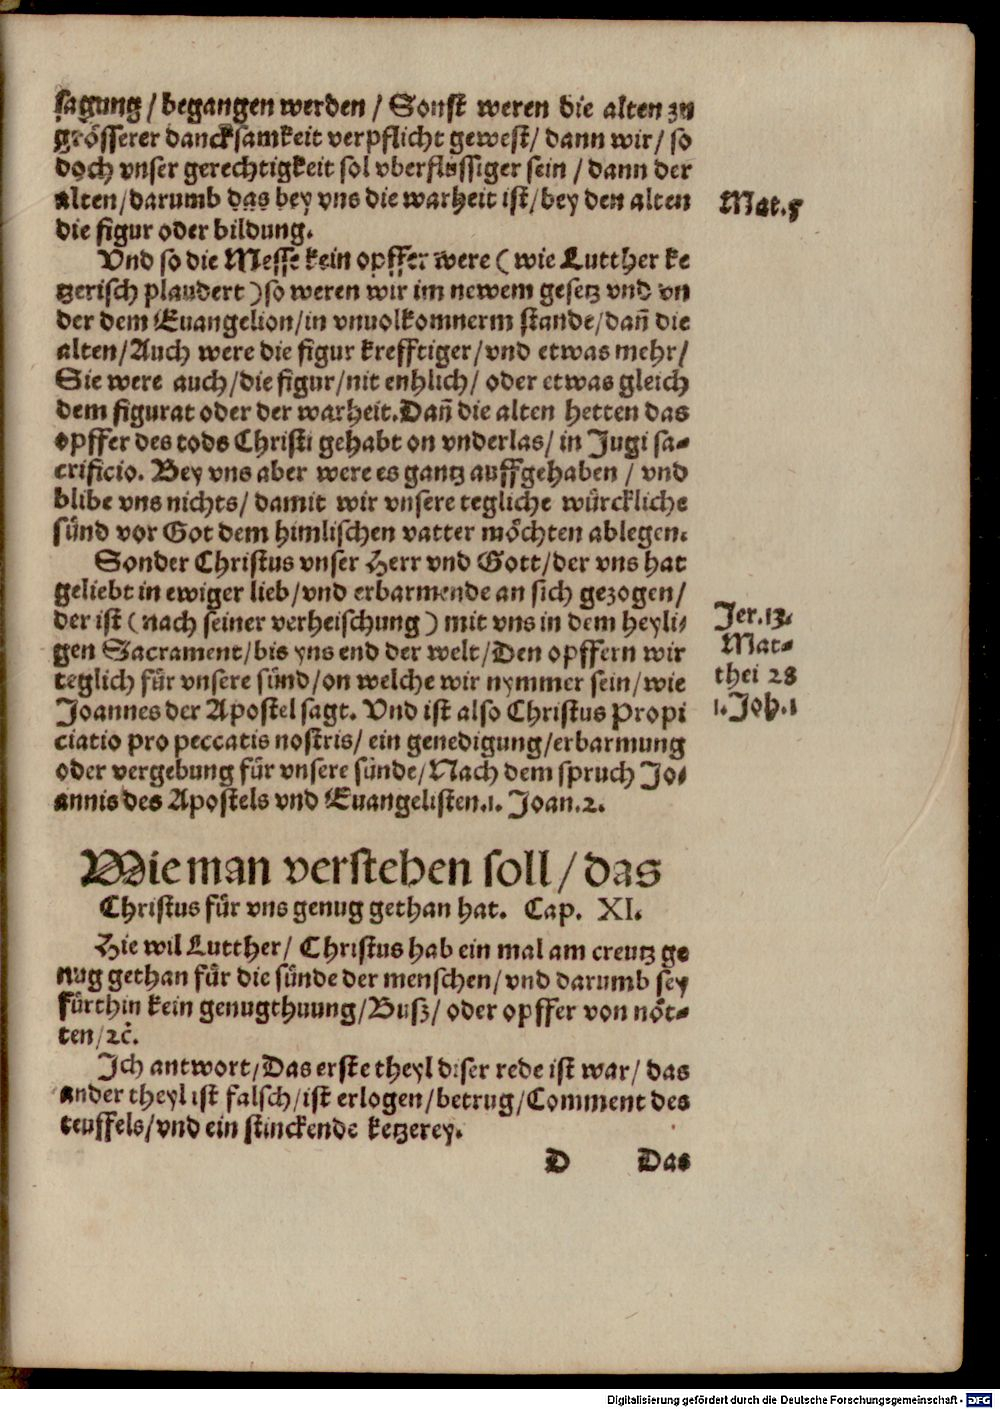 sagung / begangen werden / Sonst weren die alten zu
grösserer dancksamkeit verpflicht gewest / dann wir / so
doch vnser gerechtigkeit sol vberflüssiger sein / dann der
alten / darumb das bey vns die warheit ist / bey den alten
die figur oder bildung.
Mat. 5
Vnd so die Messe kein opffer were ( wie Lutther ke
tzerisch plaudert ) so weren wir im newem gesetz vnd vn
der dem Euangelion / in vnuolkomnerm stande / dañ die
alten / Auch were die figur krefftiger / vnd etwas mehr /
Sie were auch / die figur / nit enhlich / oder etwas gleich
dem figurat oder der warheit. Dañ die alten hetten das
opffer des tods Christi gehabt on vnderlas / in Jugi sa-
crificio. Bey vns aber were es gantz auffgehaben / vnd
blibe vns nichts / damit wir vnsere tegliche würckliche
sünd vor Got dem himlischen vatter möchten ablegen.
Sonder Christus vnser Herr vnd Gott / der vns hat
geliebt in ewiger lieb / vnd erbarmende an sich gezogen /
der ist ( nach seiner verheischung ) mit vns in dem heyli-
gen Sacrament / bis yns end der welt / Den opffern wir
teglich für vnsere sünd / on welche wir nymmer sein / wie
Joannes der Apostel sagt. Vnd ist also Christus Propi
ciatio pro peccatis nostris / ein genedigung / erbarmung
oder vergebung für vnsere sünde / Nach dem spruch Jo-
annis des Apostels vnd Euangelisten. 1. Joan. 2.
Jer. 13.
Mat-
thei 28
1. Joh. 1
Wie man verstehen soll / das
Christus für vns genug gethan hat. Cap. XI.
Hie wil Lutther / Christus hab ein mal am creutz ge
nug gethan für die sünde der menschen / vnd darumb sey
fürthin kein genugthuung / Buß / oder opffer von nöt-
ten / ꝛc̈.
Ich antwort / Das erste theyl diser rede ist war / das
ander theyl ist falsch / ist erlogen / betrug / Comment des
teuffels / vnd ein stinckende ketzerey.
D Das
Digitalisierung gefördert durch die Deutsche Forschungsgemeinschaft - DFG